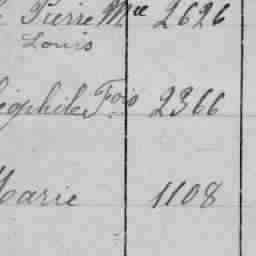 Pierre Mce 2626
Louis
éophile Fois 2366
Marie 1108